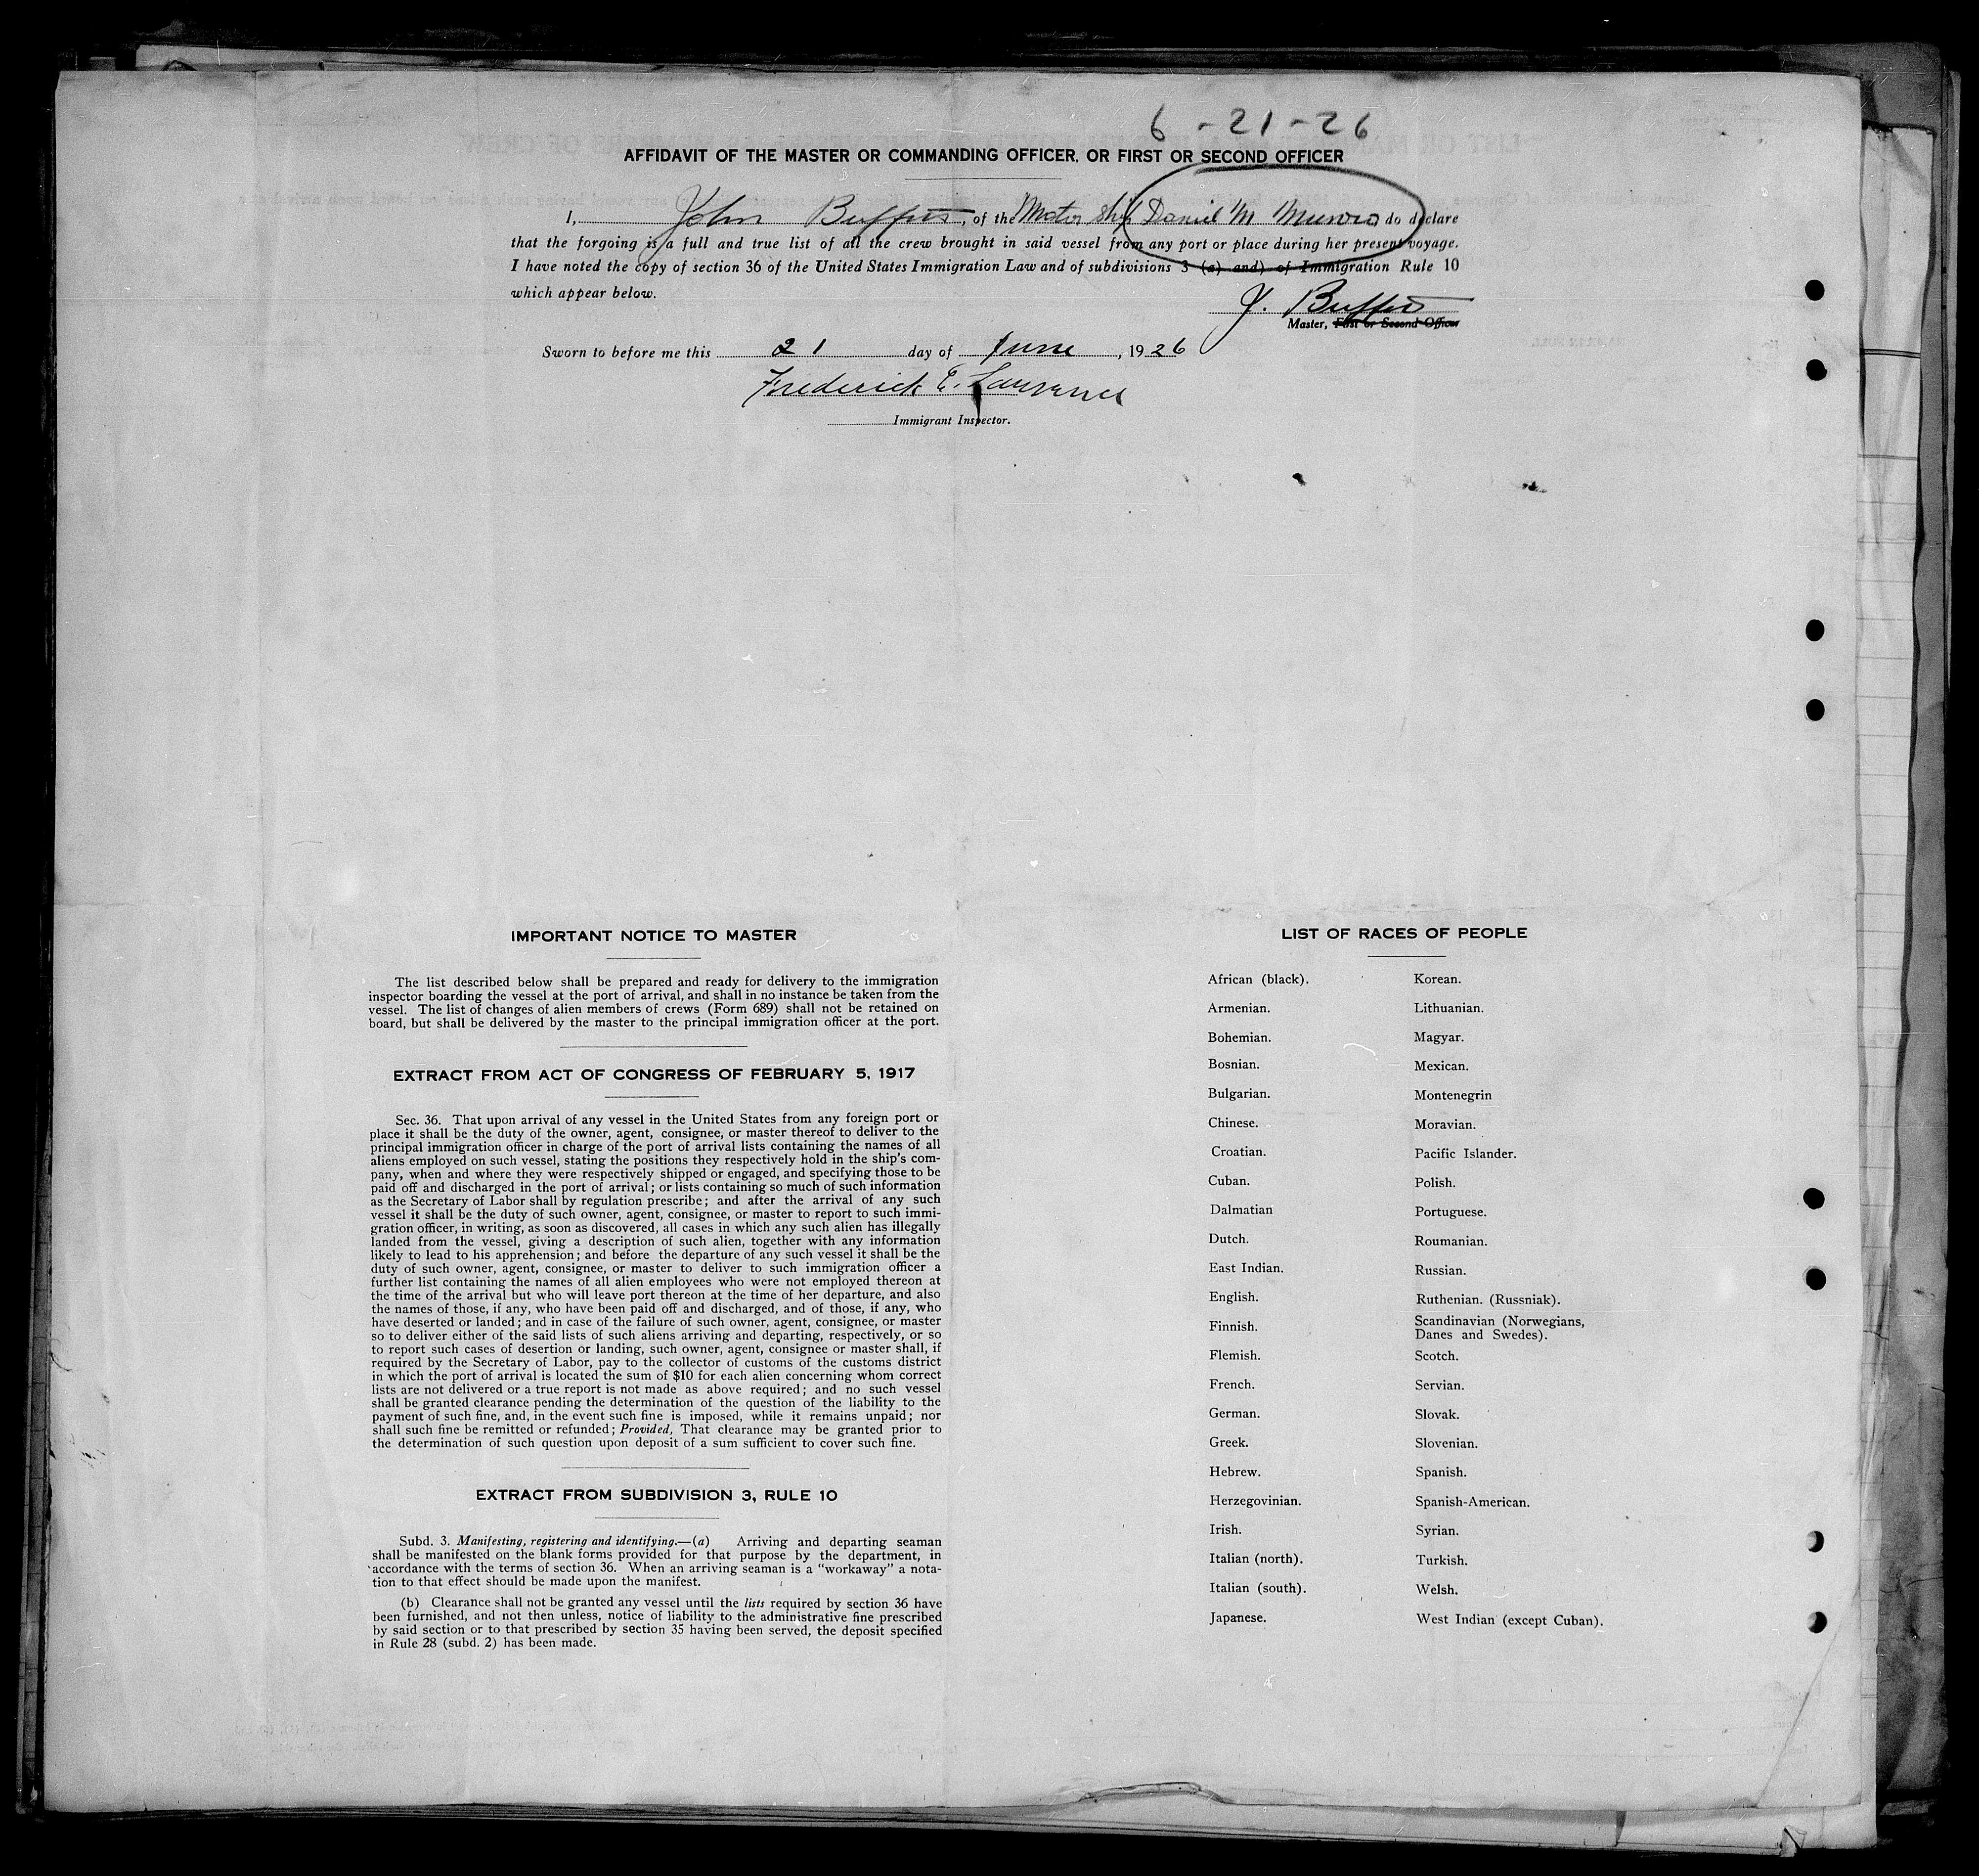 6-21-26
AFFIDAVIT OF THE MASTER OR COMMANDING OFFICER, OR FIRST OR SECOND OFFICER
I, John Buffett, of the Motor Ship Daniel M Munro do declare
that the forgoing is a full and true list of all the crew brought in said vessel from any port or place during her present voyage.
I have noted the copy of section 36 of the United States Immigration Law and of subdivisions 3 (a) and) of Immigration Rule 10
which appear below.
J. Buffett
Master, First or Second Officer
Sworn to before me this 21 day of June, 1926
Frederick E. Lawrence
Immigrant Inspector.
IMPORTANT NOTICE TO MASTER
The list described below shall be prepared and ready for delivery to the immigration
inspector boarding the vessel at the port of arrival, and shall in no instance be taken from the
vessel. The list of changes of alien members of crews (Form 689) shall not be retained on
board, but shall be delivered by the master to the principal immigration officer at the port.
EXTRACT FROM ACT OF CONGRESS OF FEBRUARY 5, 1917
Sec. 36. That upon arrival of any vessel in the United States from any foreign port or
place it shall be the duty of the owner, agent, consignee, or master thereof to deliver to the
principal immigration officer in charge of the port of arrival lists containing the names of all
aliens employed on such vessel, stating the positions they respectively hold in the ship's com-
pany, when and where they were respectively shipped or engaged, and specifying those to be
paid off and discharged in the port of arrival; or lists containing so much of such information
as the Secretary of Labor shall by regulation prescribe; and after the arrival of any such
vessel it shall be the duty of such owner, agent, consignee, or master to report to such immi-
gration officer, in writing, as soon as discovered, all cases in which any such alien has illegally
landed from the vessel, giving a description of such alien, together with any information
likely to lead to his apprehension; and before the departure of any such vessel it shall be the
duty of such owner, agent, consignee, or master to deliver to such immigration officer a
further list containing the names of all alien employees who were not employed thereon at
the time of the arrival but who will leave port thereon at the time of her departure, and also
the names of those, if any, who have been paid off and discharged, and of those, if any, who
have deserted or landed; and in case of the failure of such owner, agent, consignee, or master
so to deliver either of the said lists of such aliens arriving and departing, respectively, or so
to report such cases of desertion or landing, such owner, agent, consignee or master shall, if
required by the Secretary of Labor, pay to the collector of customs of the customs district
in which the port of arrival is located the sum of $10 for each alien concerning whom correct
lists are not delivered or a true report is not made as above required; and no such vessel
shall be granted clearance pending the determination of the question of the liability to the
payment of such fine, and, in the event such fine is imposed, while it remains unpaid; nor
shall such fine be remitted or refunded; Provided, That clearance may be granted prior to
the determination of such question upon deposit of a sum sufficient to cover such fine.
EXTRACT FROM SUBDIVISION 3, RULE 10
Subd. 3. Manifesting, registering and identifying.—(a) Arriving and departing seaman
shall be manifested on the blank forms provided for that purpose by the department, in
accordance with the terms of section 36. When an arriving seaman is a "workaway" a nota-
tion to that effect should be made upon the manifest.
(b) Clearance shall not be granted any vessel until the lists required by section 36 have
been furnished, and not then unless, notice of liability to the administrative fine prescribed
by said section or to that prescribed by section 35 having been served, the deposit specified
in Rule 28 (subd. 2) has been made.
LIST OF RACES OF PEOPLE
African (black).
Armenian.
Bohemian.
Bosnian.
Bulgarian.
Chinese.
Croatian.
Cuban.
Dalmatian
Dutch.
East Indian.
English.
Finnish.
Flemish.
French.
German.
Greek.
Hebrew.
Herzegovinian.
Irish.
Italian (north).
Italian (south).
Japanese.
Korean.
Lithuanian.
Magyar.
Mexican.
Montenegrin
Moravian.
Pacific Islander.
Polish.
Portuguese.
Roumanian.
Russian.
Ruthenian. (Russniak).
Scandinavian (Norwegians,
Danes and Swedes).
Scotch.
Servian.
Slovak.
Slovenian.
Spanish.
Spanish-American.
Syrian.
Turkish.
Welsh.
West Indian (except Cuban).